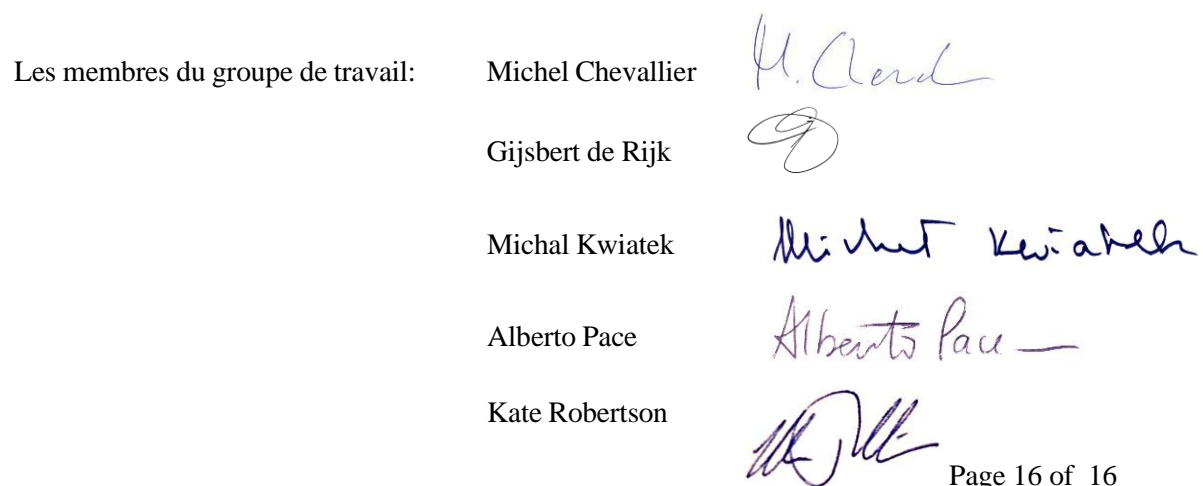 Les membres du groupe de travail: Michel Chevallier
Gijsbert de Rijk
Michal Kwiatek Michał Kwiatek
Alberto Pace Alberto Pace
Kate Robertson
Page 16 of 16